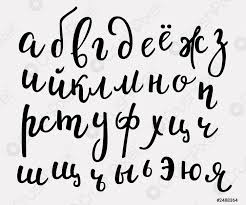 а б в г д е ё ж з
и й к л м н о п
р с т у ф х ц ч
ш щ ъ ы ь э ю я
#2488364